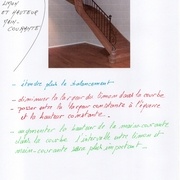 LIMON
ET HAUTEUR
MAIN-
COURANTE
- étendre plus le balancement
- diminuer la largeur du limon dans la courbe
- garder entre la largeur constante à l'équerre
et la hauteur constante.
- augmenter la hauteur de la main-courante
dans la courbe l'intervalle entre limon et
main-courante sera plus important.